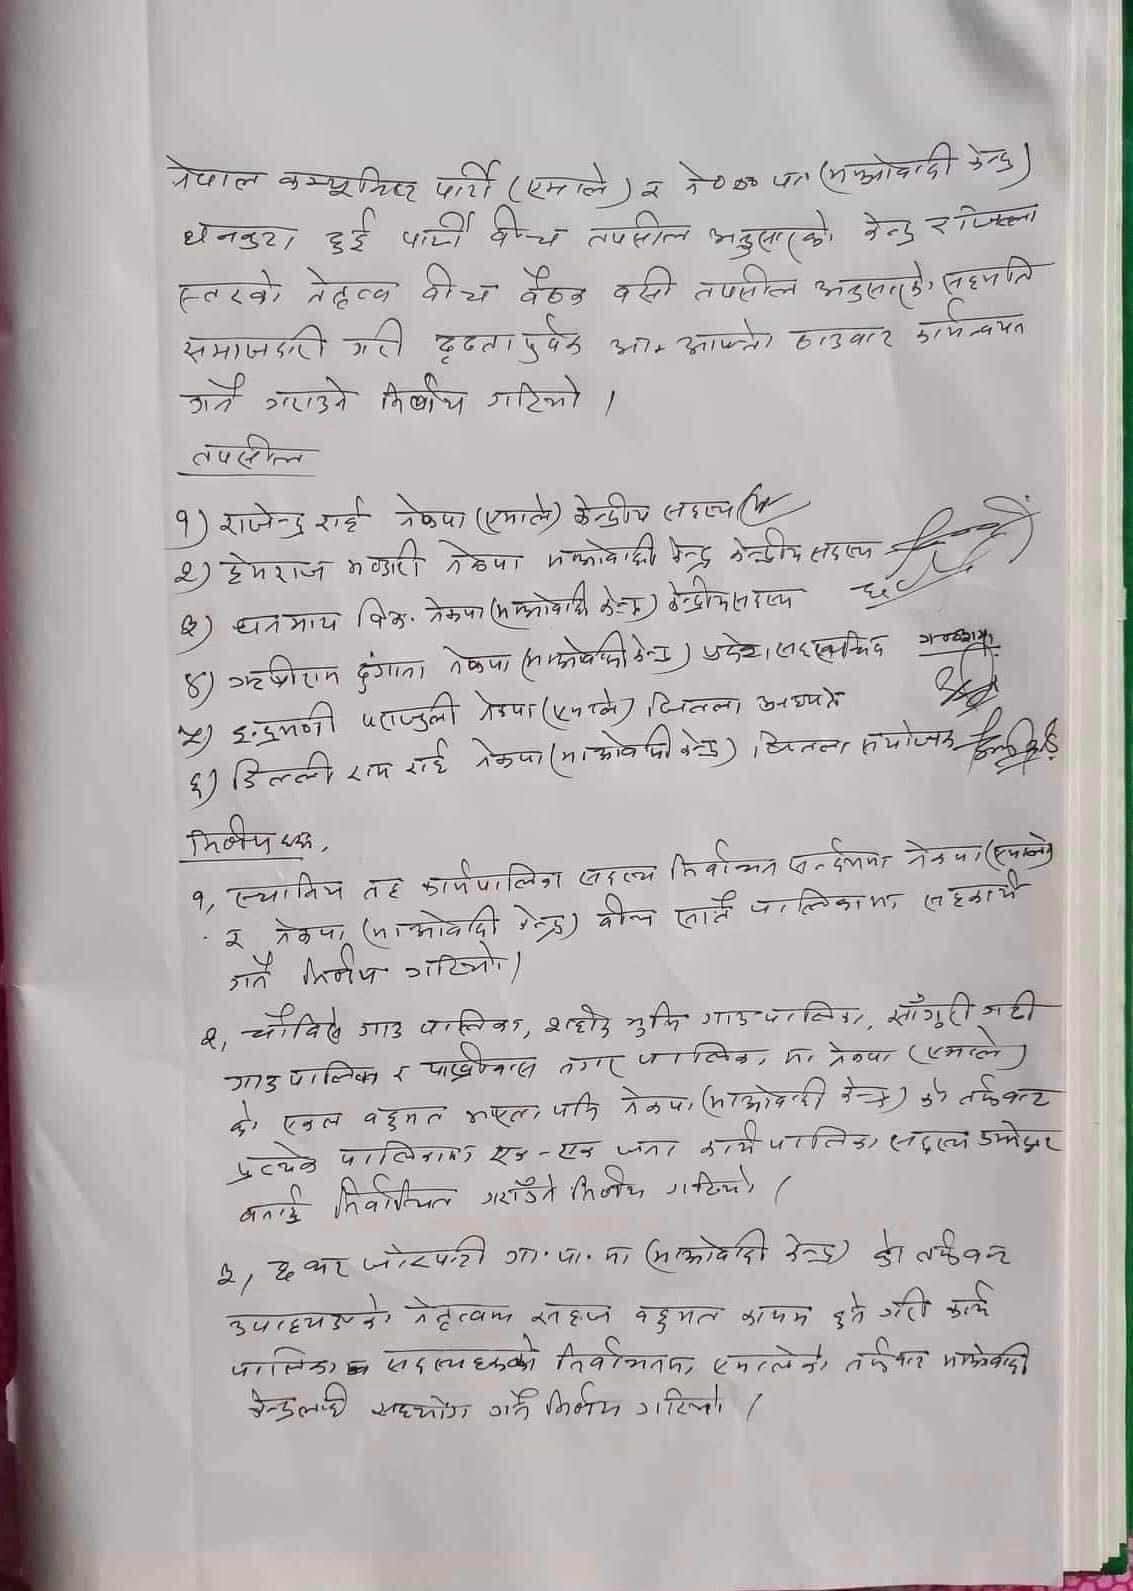 नेपाल कम्यूनिष्ट पार्टी (एमाले) र ने००० पा (माओवादी केन्द्र)
धनकुटा दुई पार्टी बीच तपसील अनुसारको केन्द्र र जिल्ला
स्तरको नेतृत्व बीच बैठक बसी तपसील अनुसारको सहमति
समाजदारी गरी दृढतापुर्वक आ-आफ्नो ठाउबाट कार्यन्वयन
गर्ने गराउने निर्णय गरियो ।
तपसील
१) राजेन्द्र राई नेकपा (एमाले) केन्द्रीय सदस्य
२) हेमराज भण्डारी नेकपा माओवादी केन्द्र केन्द्रीय सदस्य
३) धनमाय वि.क. नेकपा (माओवादी केन्द्र) केन्द्रीय सदस्य
४) ऋषीराम दुंगाना नेकपा (माओवादी केन्द्र) प्रदेश सदस्य
५) इन्द्रमणी पराजुली नेकपा (एमाले) जिल्ला अध्यक्ष
६) डिल्ली राम राई नेकपा (माओवादी केन्द्र) जिल्ला संयोजक
निर्णय हरू,
१, स्थानिय तह कार्यपालिका सदस्य निर्वाचन सन्दर्भमा नेकपा (एमाले)
र नेकपा (माओवादी केन्द्र) बीच सातै पालिकामा सहकार्य
गर्ने निर्णय गरियो ।
२, चौविसे गाउ पालिका, शहीद भुमि गाउपालिका, साँगुरी गढी
गाउपालिका र पाख्रीवास नगर पालिका मा नेकपा (एमाले)
को एकल बहुमत भएता पनि नेकपा (माओवादी केन्द्र) को तर्फबाट
प्रत्येक पालिकामा एक-एक जना कार्यपालिका सदस्य उम्मेद्वार
बनाई निर्वाचित गराउँने निर्णय गरियो ।
३, छथर जोरपाटी गा.पा. मा (माओवादी केन्द्र) को तर्फबाट
उपाध्यक्षको नेतृत्वमा सहज बहुमत कायम हुने गरी कार्य
पालिका सदस्यहरूको निर्वाचनमा एमालेको तर्फबाट माओवादी
केन्द्रलाई सहयोग गर्ने निर्णय गरियो ।